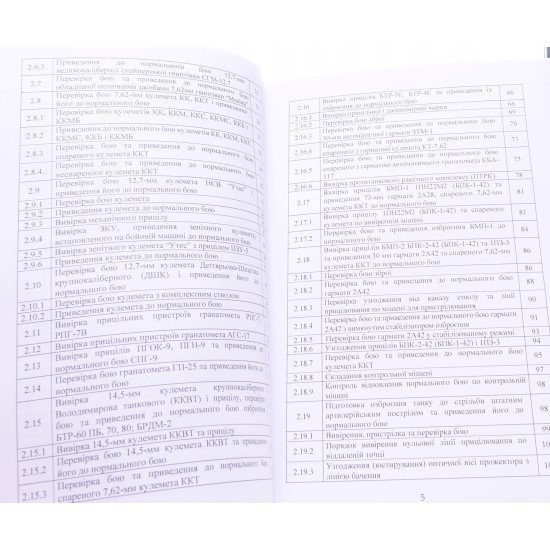 2.6.3 Приведення до нормального бою 12,7-мм
великокаліберної снайперської гвинтівки
2.7 Перевірка бою та приведення до нормального бою
обладнаної оптичними засобами 7,62-мм гвинтівки
2.8 Перевірка бою 7,62-мм кулемета КК, ККТ і приведення
його до нормального бою
2.8.1 Перевірка бою кулеметів КК, ККМ, ККС, ККМС, ККБ,
ККМБ
2.8.2 Приведення до нормального бою кулеметів КК, ККМ, ККС,
ККМС, ККБ, ККМБ
2.8.3 Перевірка бою та приведення до нормального бою
спареного кулемета ККТ
2.8.4 Перевірка бою та приведення до нормального бою
неспареного кулемета ККТ
2.9 Перевірка бою 12,7-мм кулемета НСВ "Утес" і
приведення його до нормального бою
2.9.1 Перевірка бою кулемета
2.9.2 Приведення кулемета до нормального бою
2.9.3 Вивірка механічного прицілу
2.9.4 Вивірка ЗКУ, приведення зенітного кулемета,
встановленого на бойовій машині до нормального бою
2.9.5 Вивірка зенітного кулемета "Утес" з прицілом ПЗУ-5
2.9.6 Приведення кулемета до нормального бою
2.10 Перевірка бою 12,7-мм кулемета Дегтярьова-Шпагіна
крупнокаліберного (ДШК) і приведення його до
нормального бою
2.10.1 Перевірка бою кулемета з комплектним стволом
2.10.2 Приведення кулемета до нормального бою
2.11 Вивірка прицільних пристроїв гранатомета РПГ-7,
РПГ-7В
2.12 Вивірка прицільних пристроїв гранатомета АГС-17
2.13 Вивірка прицілів ПГОК-9, ПГН-9 та приведення до
нормального бою СПГ-9
2.14 Перевірка бою гранатомета ГП-25 та приведення його до
нормального бою
2.15 Вивірка 14,5-мм кулемета крупнокаліберного
Володимирова танкового (ККВТ) і прицілу, перевірка
бою та приведення до нормального бою озброєння
БТР-60 ПБ, 70, 80; БРДМ-2
2.15.1 Вивірка 14,5-мм кулемета ККВТ та прицілу
2.15.2 Перевірка бою 14,5-мм кулемета ККВТ та приведення
його до нормального бою
2.15.3 Перевірка бою та приведення до нормального бою
спареного 7,62-мм кулемета ККТ
2.16 Вивірка прицілів БТР-3Е, БТР-4Е та приведення їх 66
озброєння до нормального бою
2.16.1 Вивірка прицілів і далекомірних марок 66
2.16.2 Перевірка бою зброї 69
2.16.3 Перевірка бою та приведення до нормального бою 70
30-мм автоматичної гармати ЗТМ-1
2.16.4 Перевірка бою та приведення до нормального бою 73
спареного з гарматою кулемета КТ-7,62
2.16.5 Перевірка бою та приведення до нормального бою 75
спареного з гарматою автоматичного гранатомета КБА-
2.16.6 Вивірка протитанкового ракетного комплексу (ПТРК) 78
2.17 Вивірка прицілу БМП-1 1ПН22М2 (БПК-1-42) та 81
приведення 73-мм гармати 2А28, спареного 7,62-мм
кулемета ККТ до нормального бою
2.17.1 Вивірка прицілу 1ПН22М2 (БПК-1-42) та спареного 81
кулемета по вивірочній мішені
2.17.2 Перевірка бою та приведення озброєння БМП-1 до 84
нормального бою
2.18 Вивірка БМП-2 БПК-2-42 (БПК-1-42) та 1ПЗ-3 та 86
приведення 30 мм гармати 2А42 та спареного 7,62-мм
кулемета ККТ до нормального бою
2.18.1 Перевірка бою зброї 86
2.18.2 Перевірка бою та приведення до нормального бою 88
гармати 2А42
2.18.3 Узгодження осі каналу стволу та лінії 90
прицілювання по мішені для пристрілювання
2.18.4 Перевірка бою та приведення до нормального бою гармати 93
2А42 з вимкнутим стабілізатором озброєння
2.18.5 Перевірка бою гармати 2А42 у стабілізованому режимі 94
2.18.6 Узгодження прицілів БПК-2-42 (БПК-1-42) і 1ПЗ-3 95
2.18.7 Перевірка бою та приведення до нормального бою 97
кулемета ККТ
2.18.8 Складання контрольної мішені
2.18.9 Контроль відновлення нормального бою по контрольній 98
мішені
2.19 Підготовка озброєння танку до стрільби штатним 98
артилерійським пострілом та приведення його до
нормального бою
2.19.1 Вивірення, пристрілка та перевірка бою 99
2.19.2 Порядок вивірки нульової лінії прицілювання по
віддаленій точці
2.19.3 Узгодження (юстирування) оптичної вісі прожектора з
лінією бачення
5